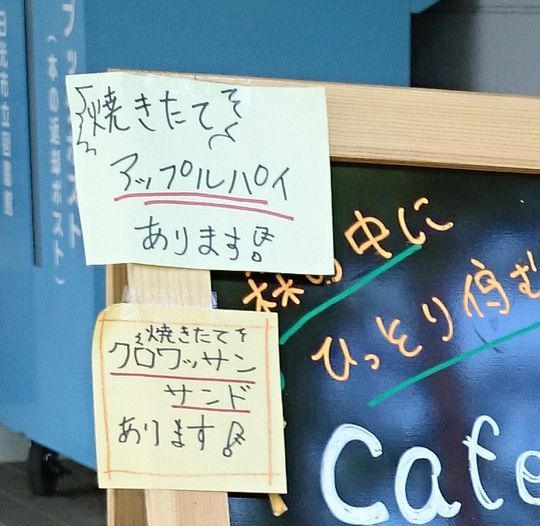 ブックポスト
(本の返却ポスト)
日光市立図書館
焼きたて
アップルパイ
あります!
焼きたて
クロワッサン
サンド
あります!
森の中に
ひっそり佇む
Cafe